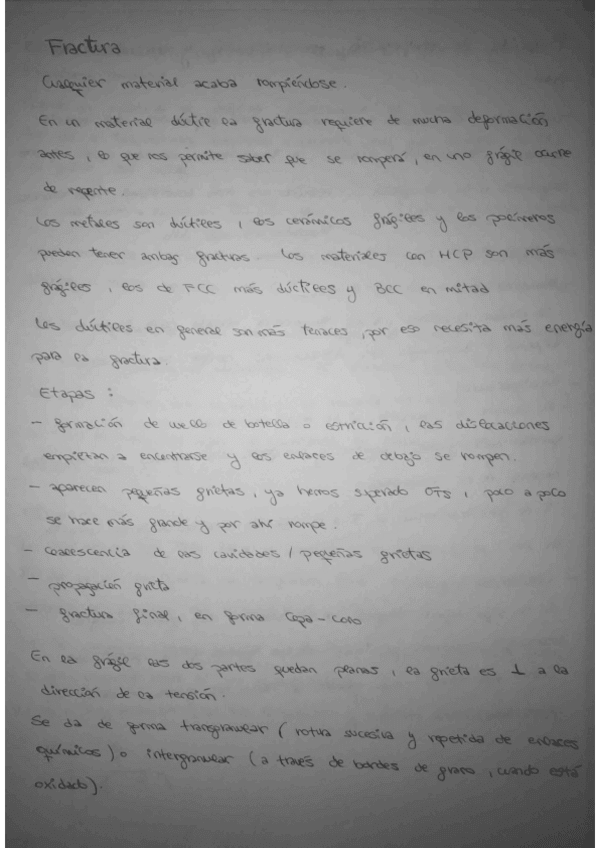 Fractura
Cualquier material acaba rompiéndose.
En un material dúctil la fractura requiere de mucha deformación
antes, lo que nos permite saber que se romperá, en uno frágil ocurre
de repente.
Los metales son dúctiles, los cerámicos frágiles y los polímeros
pueden tener ambas fracturas. Los materiales con HCP son más
frágiles, los de FCC más dúctiles y BCC en mitad
Los dúctiles en general son más tenaces, por eso necesita más energía
para la fractura.
Etapas:
- formación de cuello de botella o estricción, las dislocaciones
empiezan a encontrarse y los enlaces de debajo se rompen.
- aparecen pequeñas grietas, ya hemos superado σTS, poco a poco
se hace más grande y por ahí rompe.
- coalescencia de las cavidades / pequeñas grietas
- propagación grieta
- fractura final, en forma copa-cono
En la frágil las dos partes quedan planas, la grieta es ⊥ a la
dirección de la tensión.
Se da de forma transgranular (rotura sucesiva y repetida de enlaces
químicos) o intergranular (a través de bordes de grano, cuando está
oxidado).